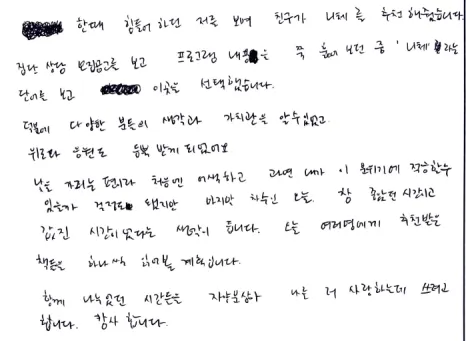 한때 힘들어 하던 저를 보며 친구가 니체를 추천 해주었습니다
집단 상담 모집공고를 보고 프로그램 내용을 쭉 훑어 보던 중 '니체'라는
단어를 보고 이곳을 선택했습니다.
덕분에 다양한 분들의 생각과 가치관을 알수있었고
위로와 응원도 듬뿍 받게 되었어요
낯을 가리는 편이라 처음엔 어색하고 과연 내가 이 분위기에 적응할수
있을까 걱정도 됐지만 마지막 차수인 오늘. 참 좋았던 시간이고
값진 시간이었다는 생각이 듭니다. 오늘 여러명에게 추천받은
책들을 하나씩 읽어볼 계획입니다.
함께 나누었던 시간들을 자양분삼아 나를 더 사랑하는데 쓰려고
합니다. 감사 합니다.